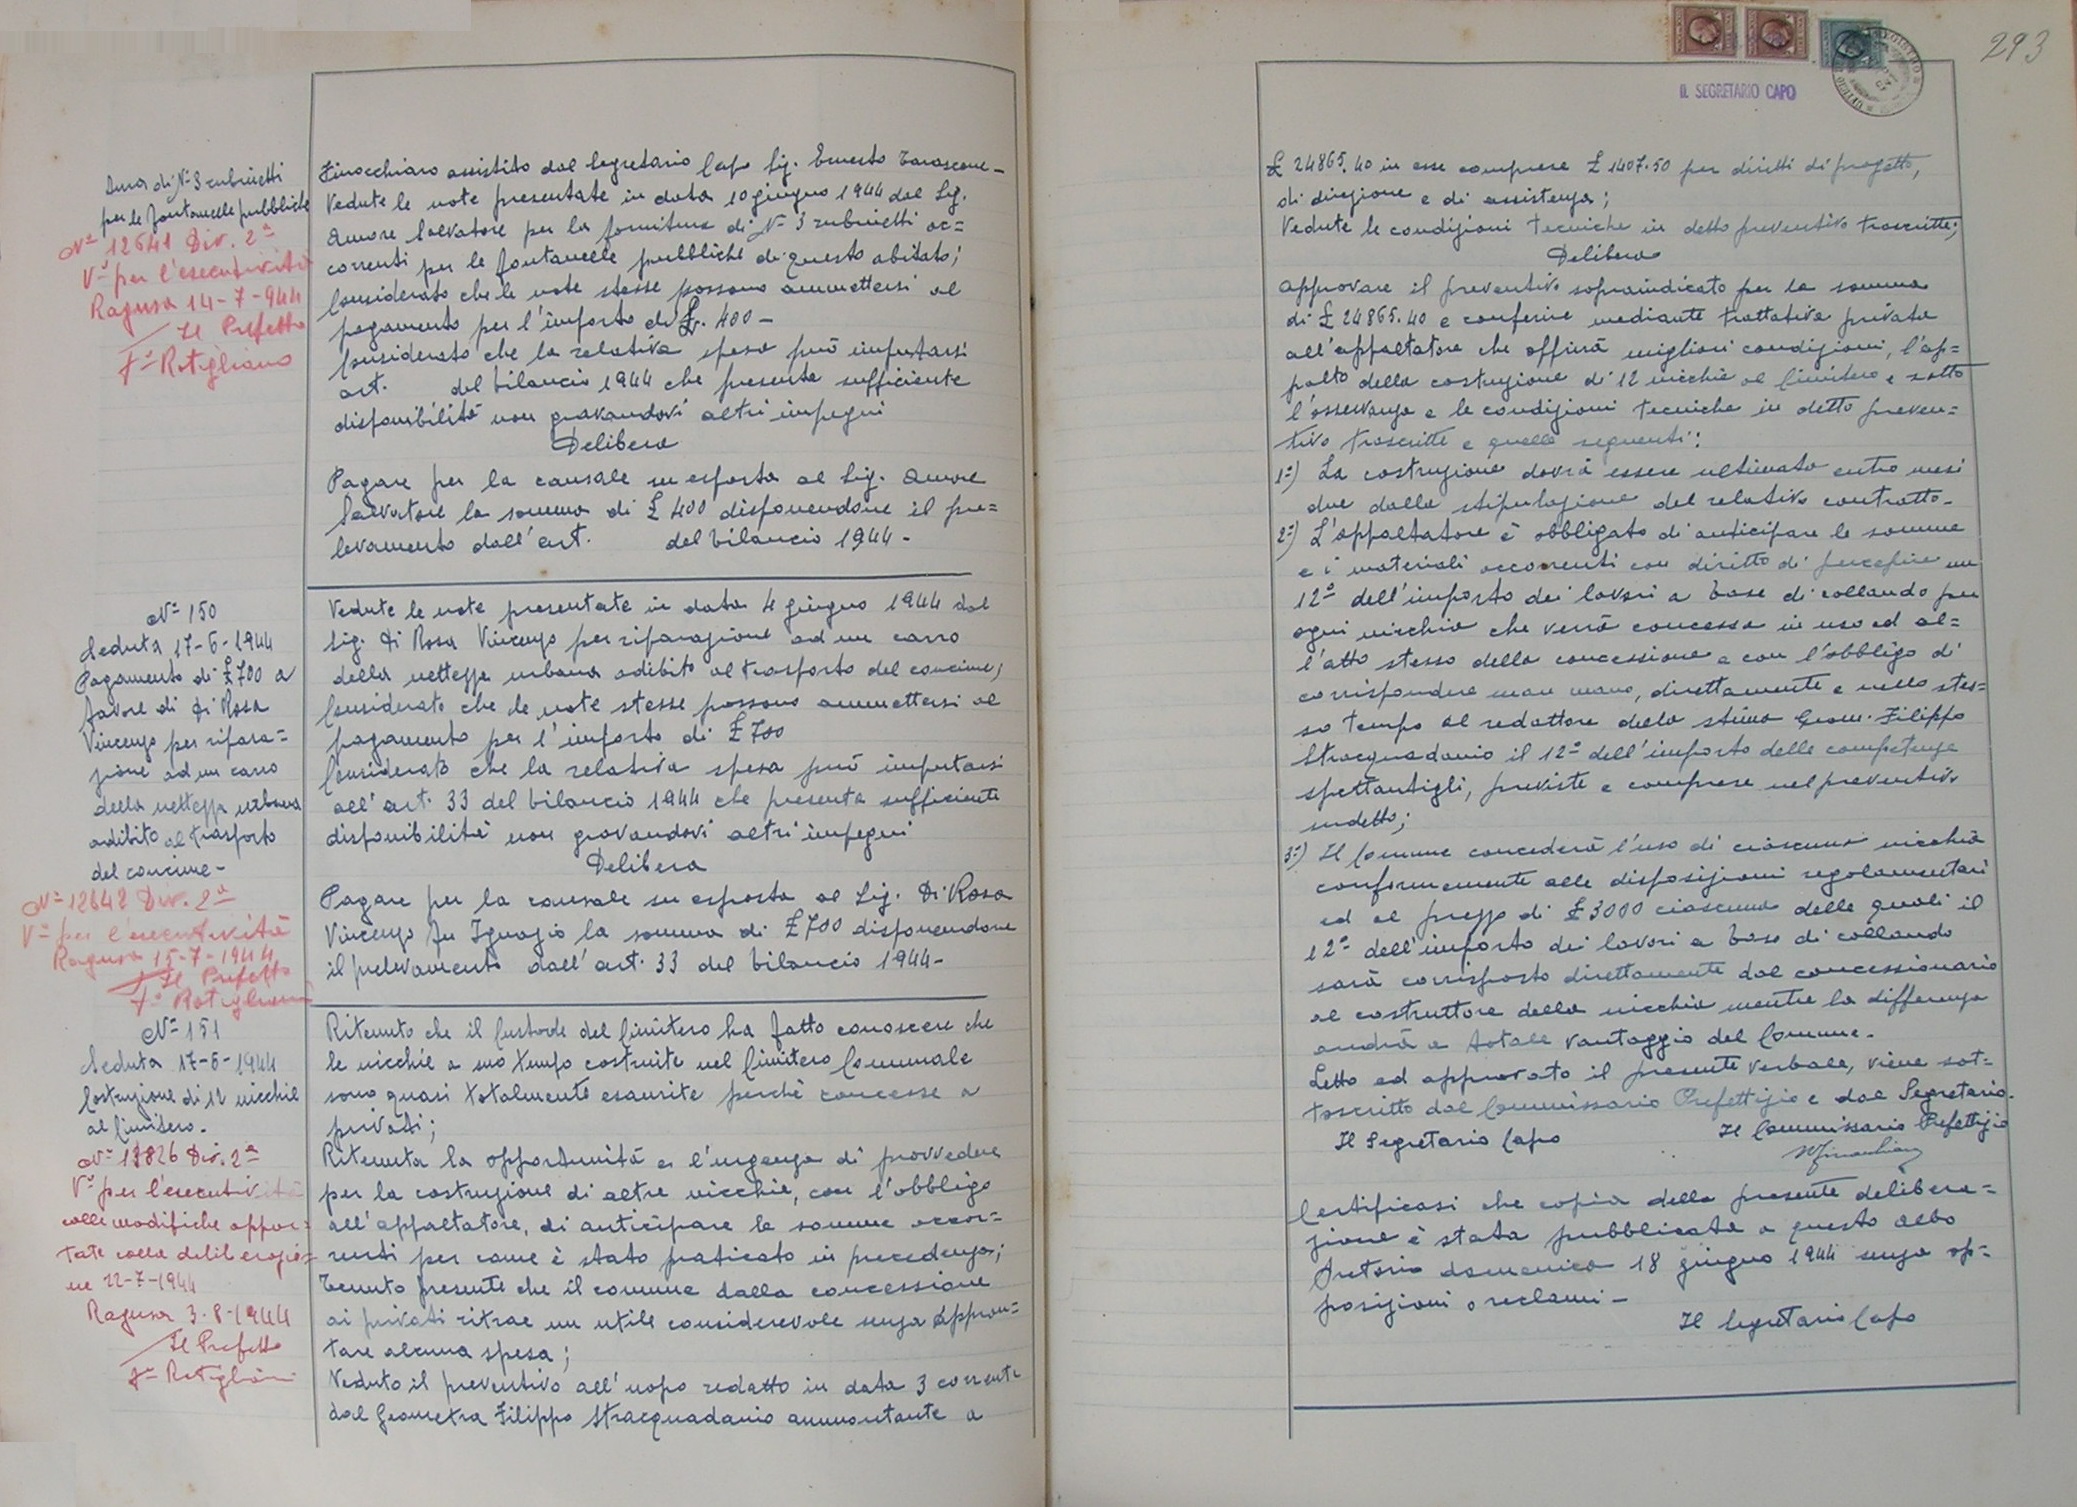 293
IL SEGRETARIO CAPO
tura di N° 3 rubinetti
per le fontanelle pubbliche
N° 12641 Div. 2ª
V° per l'esecutività
Ragusa 14-7-944
Il Prefetto
F° Rotigliano
Finocchiaro assistito dal Segretario Capo Sig. Ernesto Tarascone-
Vedute le note presentate in data 10 giugno 1944 dal Sig.
Amore Salvatore per la fornitura di N° 3 rubinetti oc=
correnti per le fontanelle pubbliche di questo abitato;
Considerato che le note stesse possono ammettersi al
pagamento per l'importo di £. 400 -
Considerato che la relativa spesa può imputarsi
art. del bilancio 1944 che presenta sufficiente
disponibilità non gravandovi altri impegni
Delibera
Pagare per la causale su esposta al Sig. Amore
Salvatore la somma di £ 400 disponendone il pre=
levamento dall'art. del bilancio 1944 -
N° 150
Seduta 17-6-1944
Pagamento di £ 700 a
favore di Di Rosa
Vincenzo per ripara=
zione ad un carro
della nettezza urbana
adibito al trasporto
del concime -
N° 12642 Div. 2ª
V° per l'esecutività
Ragusa 15-7-1944
Il Prefetto
F° Rotigliano
Vedute le note presentate in data 4 giugno 1944 dal
Sig. Di Rosa Vincenzo per riparazione ad un carro
della nettezza urbana adibito al trasporto del concime;
Considerato che le note stesse possono ammettersi al
pagamento per l'importo di £ 700
Considerato che la relativa spesa può imputarsi
all'art. 33 del bilancio 1944 che presenta sufficiente
disponibilità non gravandovi altri impegni
Delibera
Pagare per la causale su esposta al Sig. Di Rosa
Vincenzo fu Ignazio la somma di £ 700 disponendone
il prelevamento dall'art. 33 del bilancio 1944 -
N° 151
Seduta 17-6-1944
Costruzione di 12 nicchie
al Cimitero.
N° 13826 Div. 2ª
V° per l'esecutività
colle modifiche appor=
tate colla deliberazio=
ne 22-7-1944
Ragusa 3-8-1944
Il Prefetto
F° Rotigliano
Ritenuto che il Custode del Cimitero ha fatto conoscere che
le nicchie a suo tempo costruite nel Cimitero Comunale
sono quasi totalmente esaurite perché concesse a
privati;
Ritenuta la opportunità e l'urgenza di provvedere
per la costruzione di altre nicchie, con l'obbligo
all'appaltatore, di anticipare le somme occor=
renti per come è stato praticato in precedenza;
Tenuto presente che il comune dalla concessione
ai privati ritrae un utile considerevole senza appron=
tare alcuna spesa;
Veduto il preventivo all'uopo redatto in data 3 corrente
dal Geometra Filippo Stracquadanio ammontante a
£ 24865.40 in esse comprese £ 1407.50 per diretti di progetto,
di direzione e di assistenza;
Vedute le condizioni tecniche in detto preventivo trascritte;
Delibera
approvare il preventivo sopraindicato per la somma
di £ 24865.40 e conferire mediante trattativa privata
all'appaltatore che offrirà migliori condizioni, l'ap=
palto della costruzione di 12 nicchie al Cimitero e sotto
l'osservanza e le condizioni tecniche in detto preven=
tivo trascritte e quelle seguenti:
1°) La costruzione dovrà essere ultimata entro mesi
due dalla stipulazione del relativo contratto -
2°) L'appaltatore è obbligato di anticipare le somme
e i materiali occorrenti con diritto di percepire un
12° dell'importo dei lavori a base di collaudo per
ogni nicchia che verrà concessa in uso ed al=
l'atto stesso della concessione e con l'obbligo di
corrispondere man mano, direttamente e nello stes=
so tempo al redattore della stima Geom. Filippo
Stracquadanio il 12° dell'importo delle competenze
spettantigli, previste e comprese nel preventivo
sudetto;
3°) Il Comune concederà l'uso di ciascuna nicchia
conformemente alle disposizioni regolamentari
ed al prezzo di £ 3000 ciascuna delle quali il
12° dell'importo dei lavori a base di collaudo
sarà corrisposto direttamente dal concessionario
al costruttore della nicchia mentre la differenza
andrà a totale vantaggio del Comune.
Letto ed approvato il presente verbale, viene sot=
toscritto dal Commissario Prefettizio e dal Segretario.
Il Segretario Capo Il Commissario Prefettizio
Certificasi che copia della presente delibera=
zione è stata pubblicata a questo albo
Pretorio domenica 18 giugno 1944 senza op=
posizioni o reclami -
Il Segretario Capo